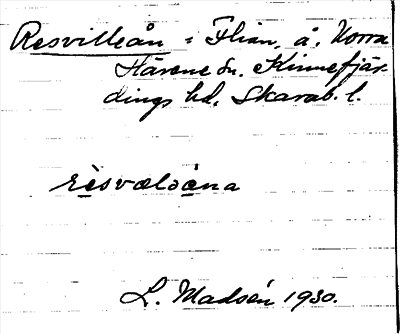 Resvilleån = Flian, å, Norra
Härene sn. Kinnefjär-
dings hd, Skarab. l.
rèsvælòèna
L. Madsén 1930.